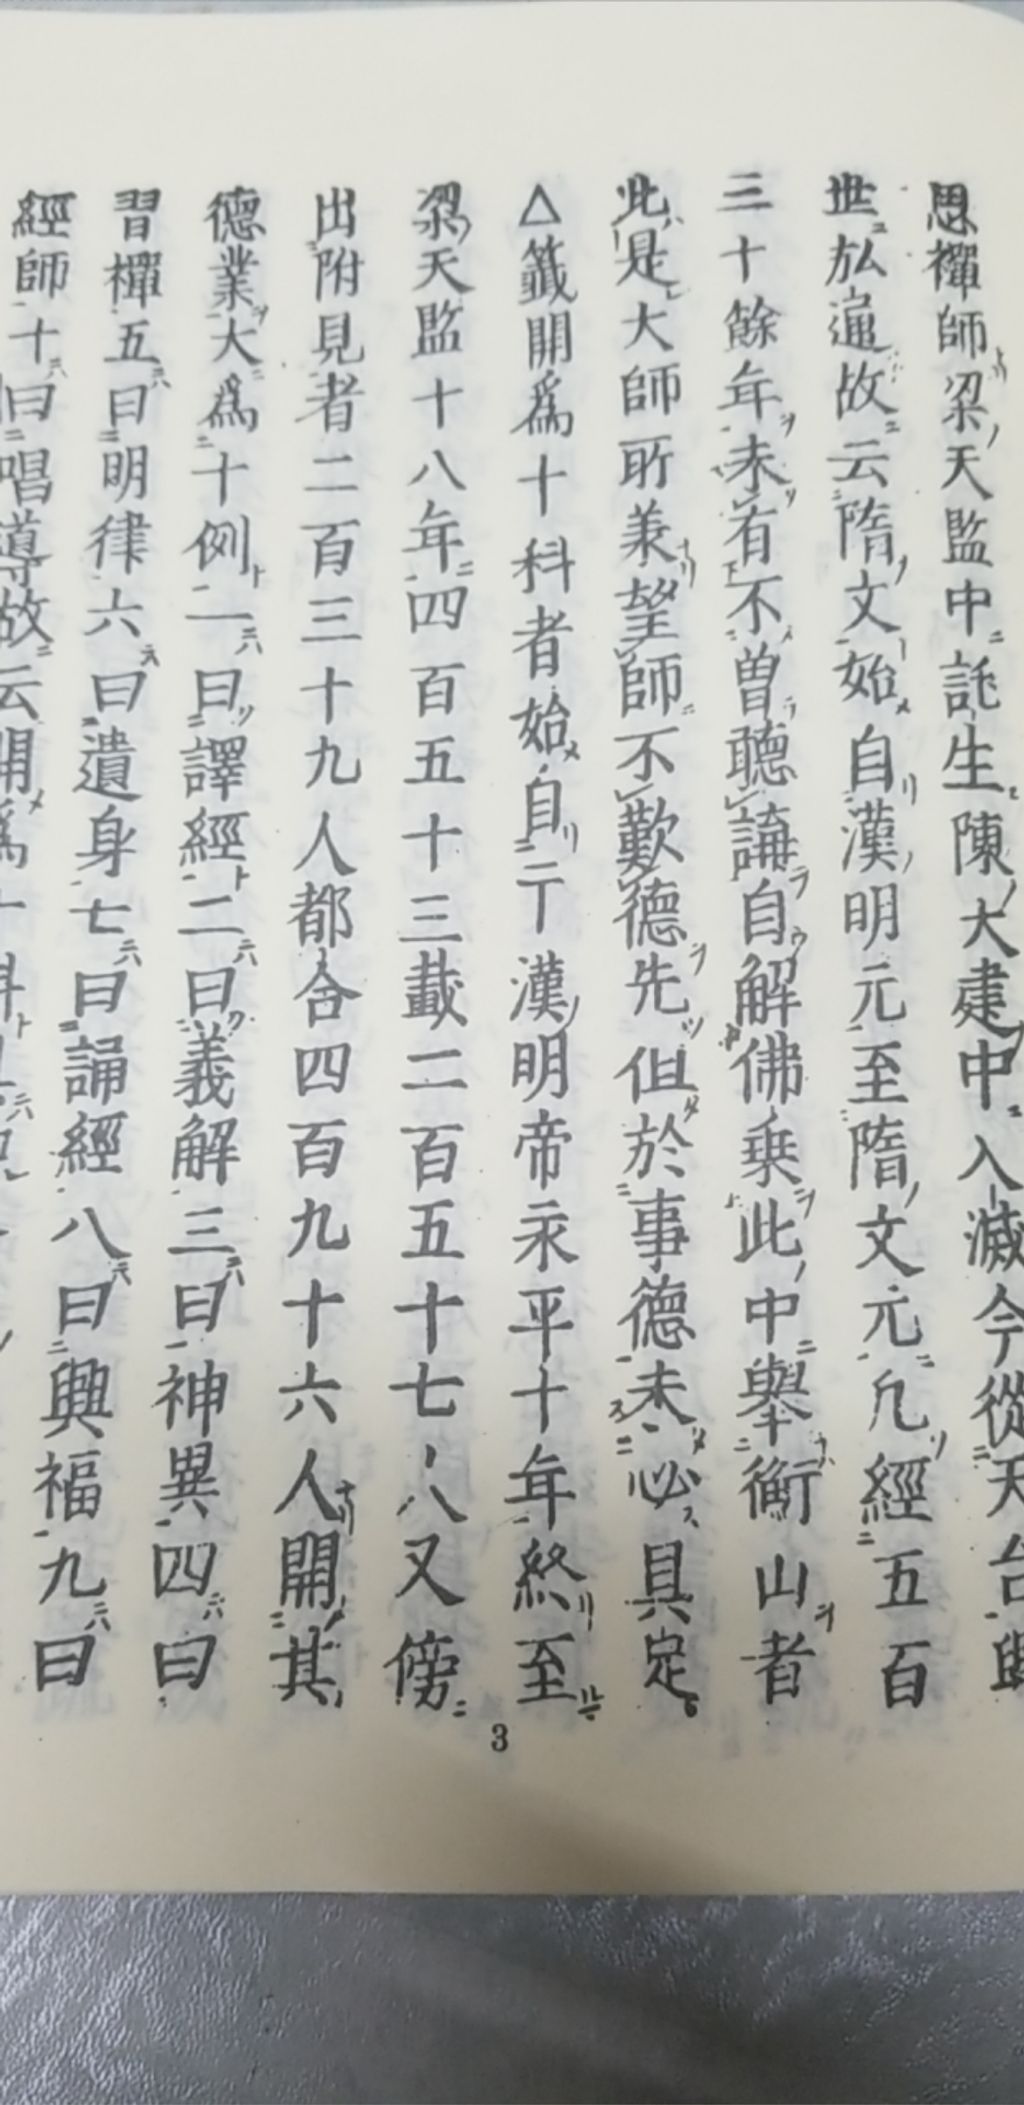 思禪師梁天監中託生陳大建中入滅今從天台
世弘通故云隋文始自漢明元至隋文元凡經五百
三十餘年未有不曽聽誦自解佛乗此中舉衡山者
此是大師所兼望師不歎德先但於事德未必具定
△籤開爲十科者始自漢明帝永平十年終至
梁天監十八年四百五十三載二百五十七人又傍
出附見者二百三十九人都合四百九十六人開其
德業大爲十例一曰譯經二曰義解三曰神異四曰
習禪五曰明律六曰遺身七曰誦經八曰興福九曰
經師十曰唱導故云開爲十科
3